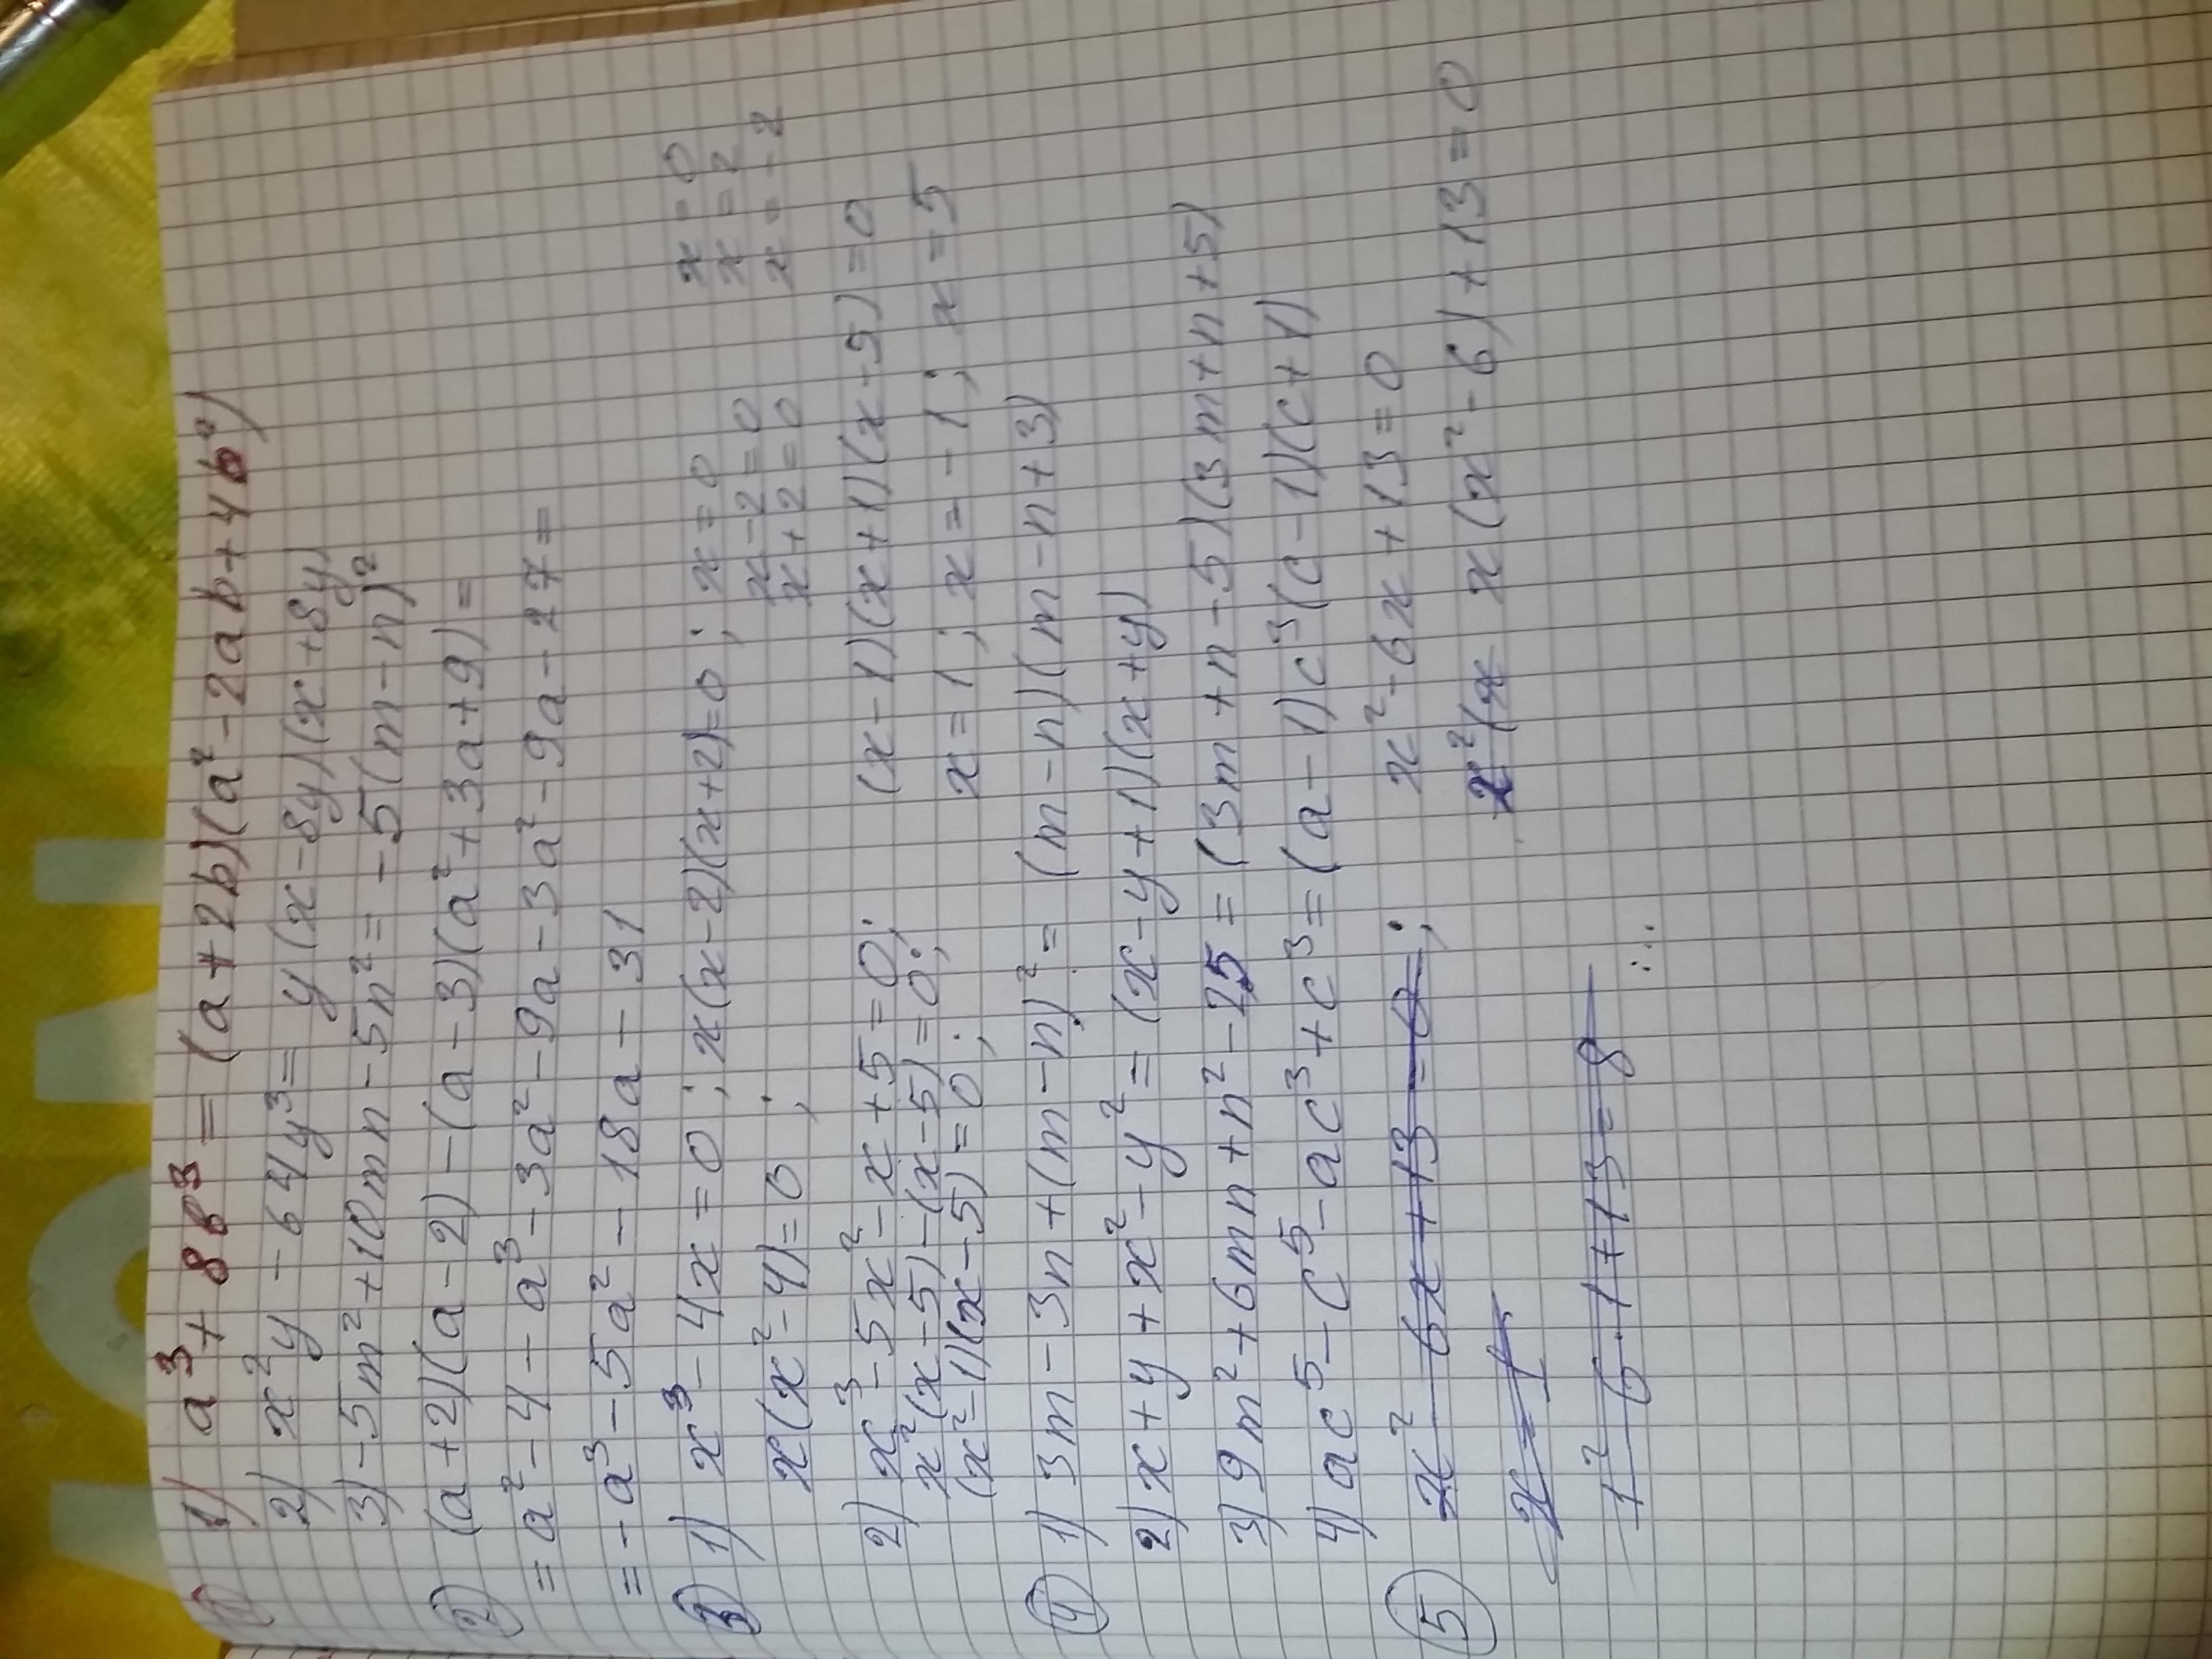 ① 1) a³ + 8b³ = (a + 2b)(a² - 2ab + 4b²)
2) x²y - 64y³ = y(x - 8y)(x + 8y)
3) -5m² + 10mn - 5n² = -5(m - n)²
② (a + 2)(a - 2) - (a - 3)(a² + 3a + 9) =
= a² - 4 - a³ - 3a² - 9a - 3a² - 9a - 27 =
= - a³ - 5a² - 18a - 31
③ 1) x³ - 4x = 0; x(x - 2)(x + 2) = 0; x = 0 x = 0
x - 2 = 0 x = 2
x(x² - 4) = 0; x + 2 = 0 x = -2
2) x³ - 5x² - x + 5 = 0; (x - 1)(x + 1)(x - 5) = 0
x²(x - 5) - (x - 5) = 0;
(x² - 1)(x - 5) = 0; x = 1; x = -1; x = 5
④ 1) 3m - 3n + (m - n)² = (m - n)(m - n + 3)
2) x + y + x² - y² = (x - y + 1)(x + y)
3) 9m² + 6mn + n² - 25 = (3m + n - 5)(3m + n + 5)
4) ac⁵ - c⁵ - ac³ + c³ = (a - 1)c³(c - 1)(c + 1)
⑤ x² - 6x + 13 = 0; x² - 6x + 13 = 0
x = 1 x²(x x(x² - 6) + 13 = 0
1² - 6·1 + 13 = 8